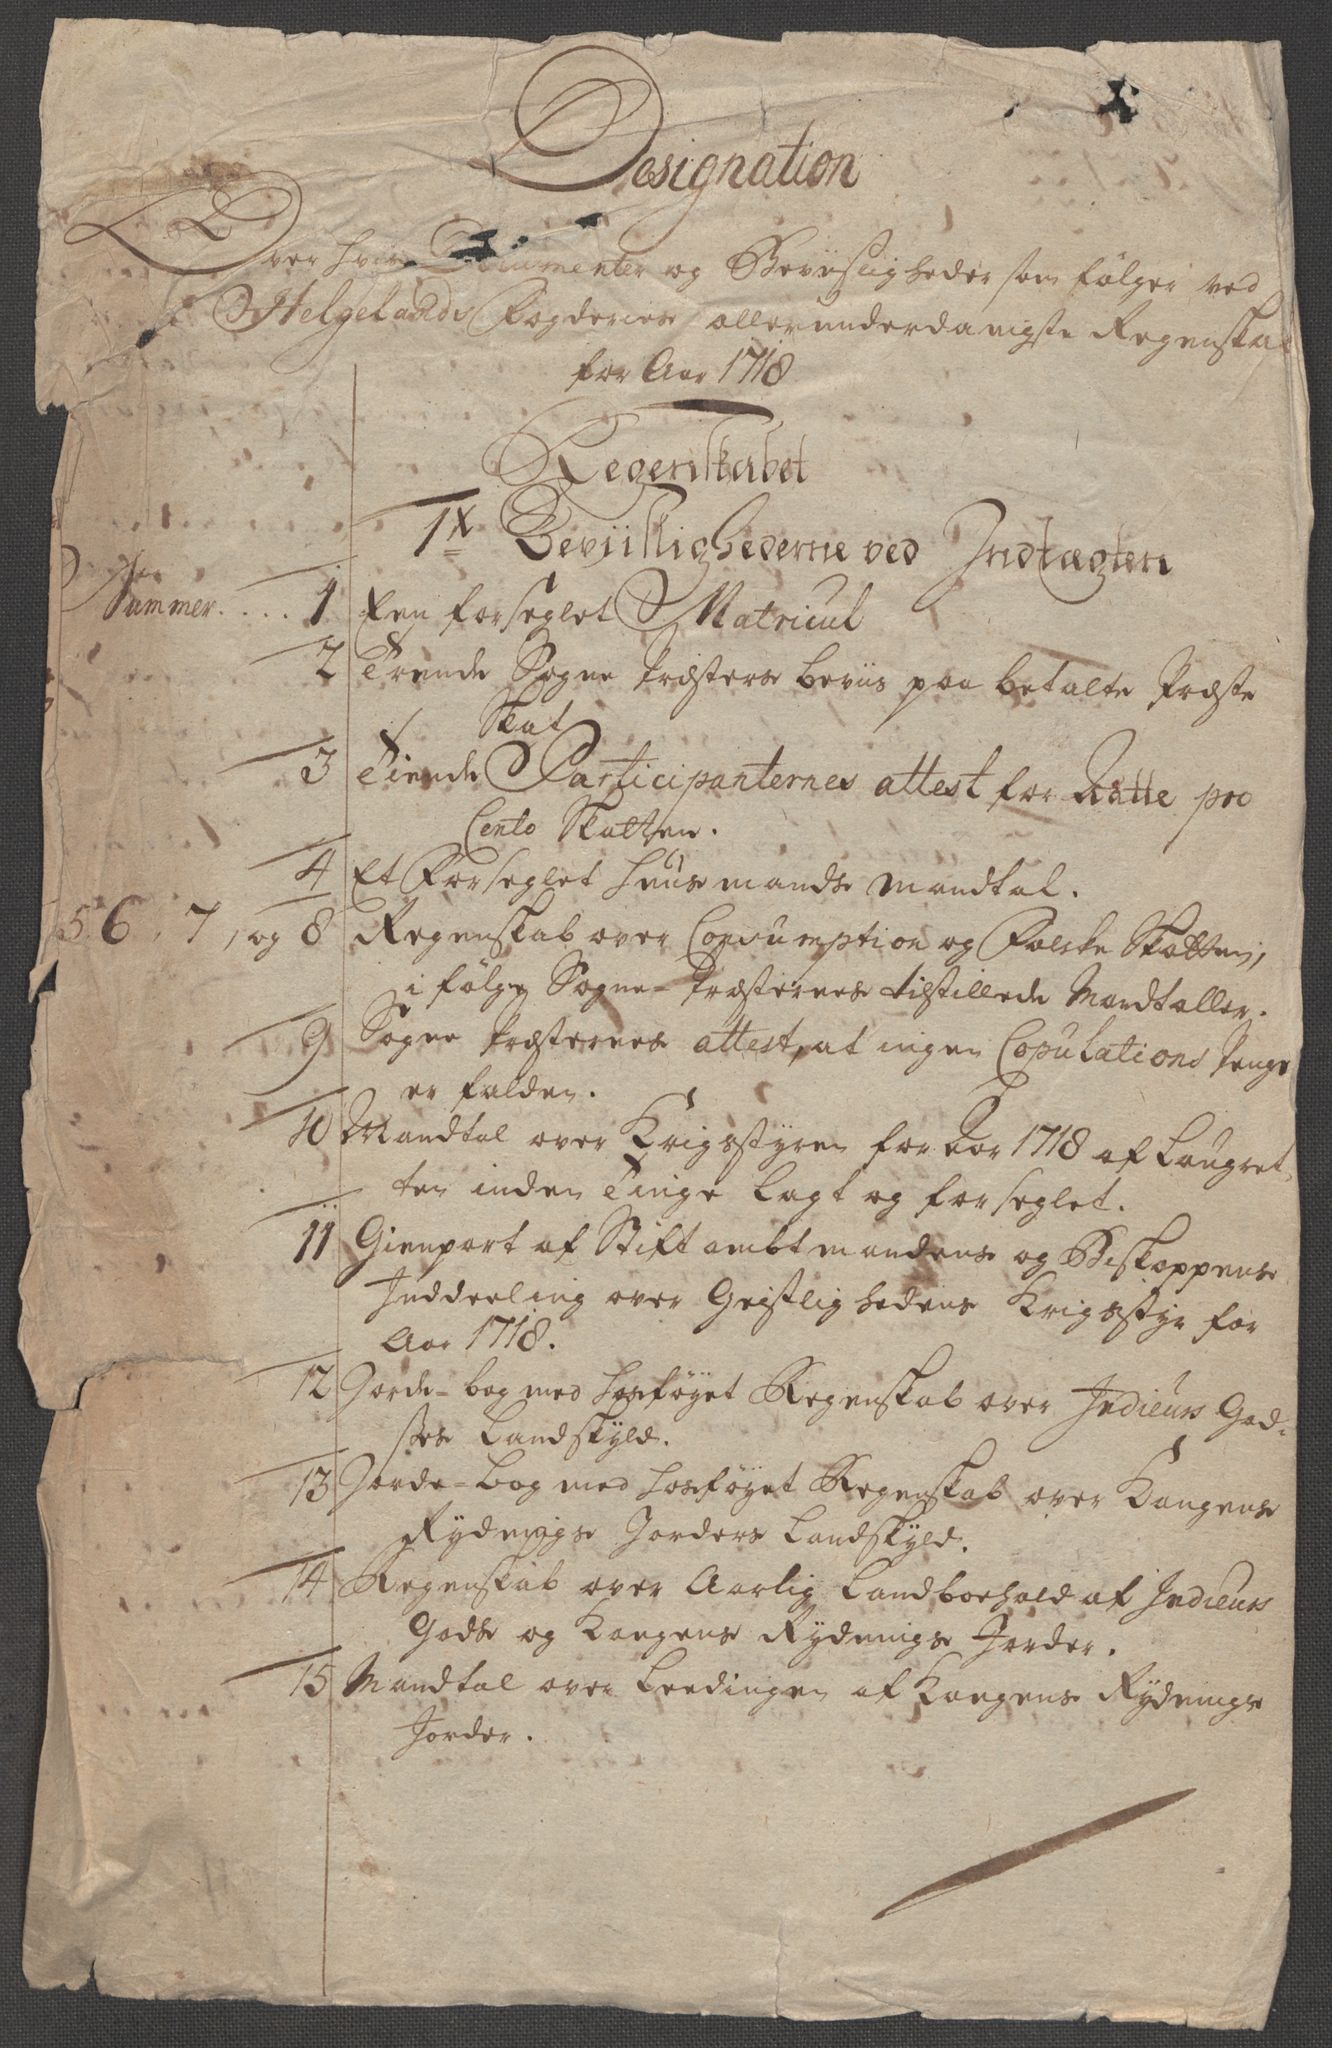 Designation
Over hvis Documenter og Beviisligheder som følger ved
Helgelands Fogderies allerunderdanigste Regenskab
for Aar 1718
Regenskabet
Beviisllighederne ved Indtægten
Nummer .... 1 Een forseglet Matricul
2 Trende Sogne Præsters beviis paa betalte Præste
Skat
3 Tiende Participanternes attest for Ratte pro
Cento Skatten.
4 Et Forseglet Huusmands Mandtal.
5, 6, 7, og 8 Regenskab over Consumption og Folke Skatten,
i følge Sogne-Præsternes tilstillede Mandtaller.
9 Sogne Præsternes attest, at ingen Copulations Penge
er falden.
10 Mandtal over Krigsstyren for Aar 1718 af Laugret
ten inden Tinge lagt og forseglet.
11 Gienpart af Stiftambtmandens og Biskoppens
Inddeeling over Geistlighedens Krigsstyr for
Aar 1718.
12 Jorde-bog med hosføyet Regenskab over Indieurs God-
ses Landskyld.
13 Jorde-bog med hosføyet Regenskab over Kongens
Rydnings Jorders Landskyld.
14 Regenskab over Aarlig Landboehold af Indieurs
Gods og Kongens Rydnings Jorder.
15 Mandtal over Leedingen af Kongens Rydnings
Jorder.